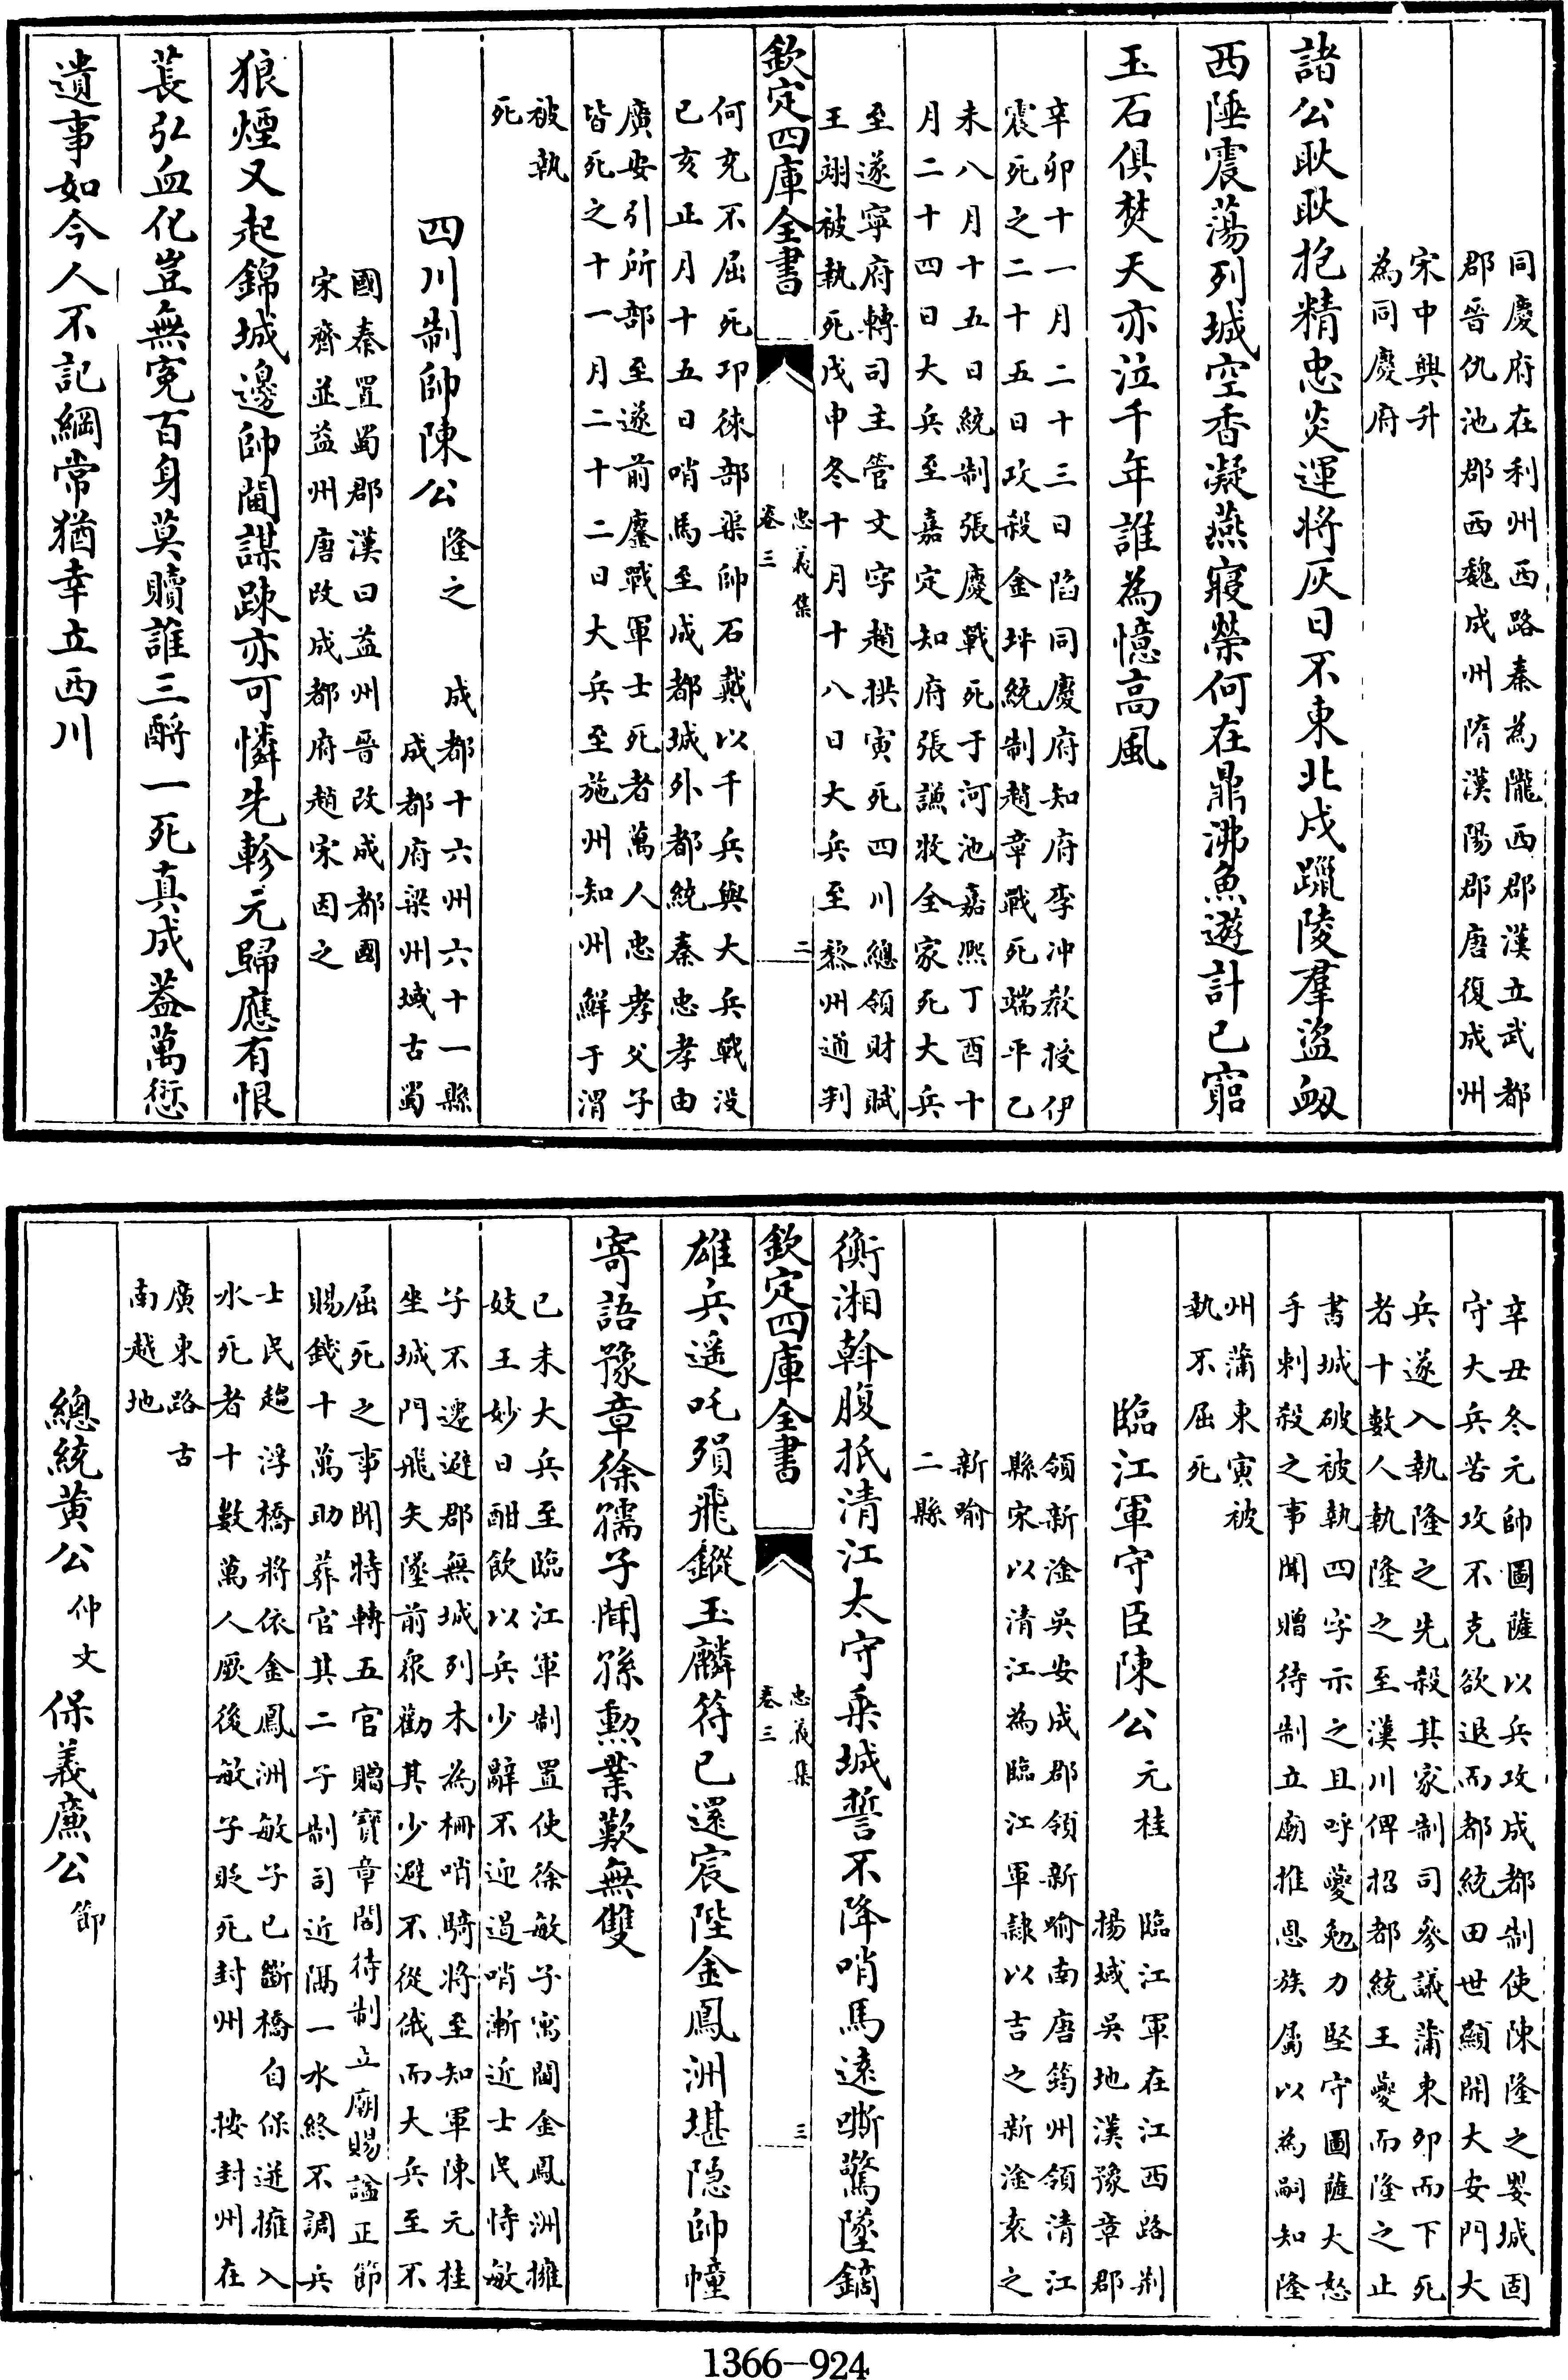 同慶府在利州西路秦為隴西郡漢立武都
郡晉仇池郡西魏成州隋漢陽郡唐復成州
宋中興升
為同慶府
諸公耿耿抱精忠炎運將灰日不東北戍躐陵羣盜衂
西陲震蕩列城空香凝燕寢榮何在鼎沸魚遊計已窮
玉石俱焚天亦泣千年誰為憶高風
辛卯十一月二十三日陷同慶府知府李冲教授伊
震死之二十五日攻殺金坪統制趙章戰死端平乙
未八月十五日統制張慶戰死于河池嘉熙丁酉十
月二十四日大兵至嘉定知府張謙牧全家死大兵
至遂寧府轉司主管文字趙拱寅死四川總領財賦
王翊被執死戊申冬十月十八日大兵至黎州通判
欽定四庫全書
忠義集
卷三
二
何充不屈死邛徠部渠帥石戴以千兵與大兵戰没
己亥正月十五日哨馬至成都城外都統秦忠孝由
廣安引所部至遂前鏖戰軍士死者萬人忠孝父子
皆死之十一月二十二日大兵至施州知州鮮于渭
被執
死
四川制帥陳公隆之
成都十六州六十一縣
成都府梁州域古蜀
國秦置蜀郡漢曰益州晉改成都國
宋齊並益州唐改成都府趙宋因之
狼煙又起錦城邊帥閫謀踈亦可憐先軫元歸應有恨
萇弘血化豈無寃百身莫贖誰三酹一死真成蓋萬愆
遺事如今人不記綱常猶幸立西川
辛丑冬元帥圖薩以兵攻成都制使陳隆之嬰城固
守大兵苦攻不克欲退而都統田世顯開大安門大
兵遂入執隆之先殺其家制司參議蒲東卯而下死
者十數人執隆之至漢川俾招都統王夔而隆之止
書城破被執四字示之且呼夔勉力堅守圖薩大怒
手刺殺之事聞贈待制立廟推恩族屬以為嗣知隆
州蒲東寅被
執不屈死
臨江軍守臣陳公元桂
臨江軍在江西路荆
揚域吳地漢豫章郡
領新淦吳安成郡領新喻南唐筠州領清江
縣宋以清江為臨江軍隸以吉之新淦袁之
新喻
二縣
衡湘斡腹抵清江太守乘城誓不降哨馬遠嘶驚墜鏑
欽定四庫全書
忠義集
卷三
三
雄兵遥吒殞飛鏦玉麟符已還宸陛金鳳洲堪隠帥幢
寄語豫章徐孺子聞孫勲業歎無雙
已未大兵至臨江軍制置使徐敏子寓閫金鳳洲擁
妓王妙日酣飲以兵少辭不迎遏哨漸近士民恃敏
子不遑避郡無城列木為柵哨騎將至知軍陳元桂
坐城門飛矢墜前衆勸其少避不從俄而大兵至不
屈死之事聞特轉五官贈寶章閣待制立廟賜諡正節
賜錢十萬助葬官其二子制司近隔一水終不調兵
士民趨浮橋將依金鳳洲敏子已斷橋自保迸擁入
水死者十數萬人厥後敏子貶死封州 按封州在
廣東路古
南越地
總統黄公仲文保義廉公節
1366—924